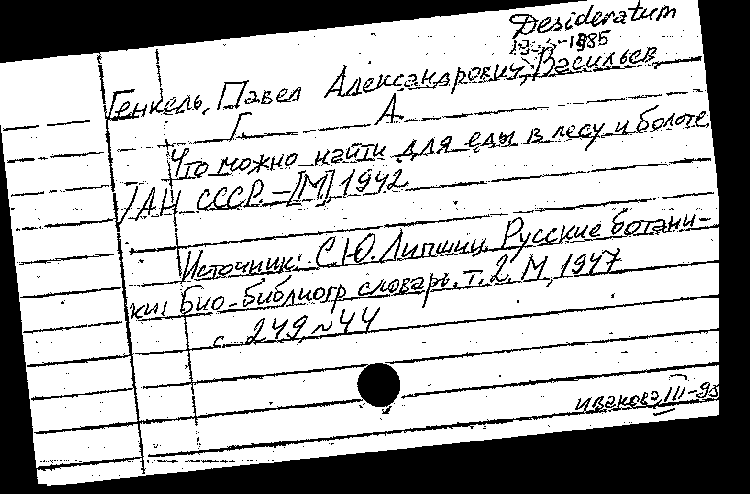 Desideratum
-1985
Генкель, Павел Александрович, Васильев,
Г. А.
Что можно найти для еды в лесу и болоте
/АН СССР. – [М] 1942
Источник: С.Ю. Липшиц. Русские ботани-
ки: Био-библиогр. словарь. т. 2. М, 1947
с 249, ~44
иванова, III-93